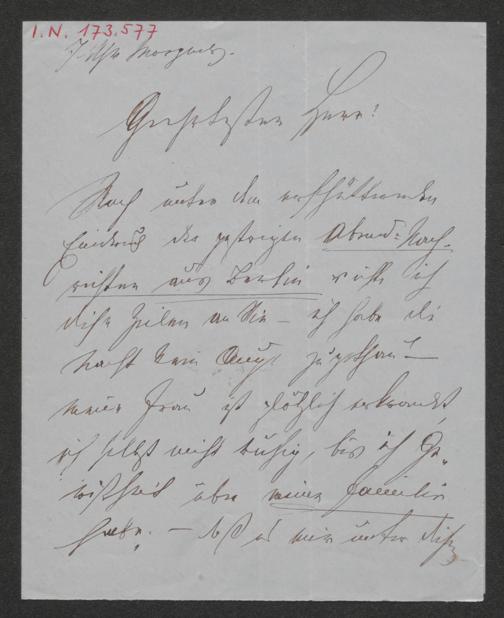 I.N. 173.577
Früh Morgens.
Geehrtester Herr!
Noch unter dem erschütternden
Eindruck der gestrigen Abend-Nach-
richten aus Berlin richte ich
diese Zeilen an Sie – ich habe die
Nacht kein Auge zugethan –
meine Frau ist plötzlich erkrankt,
ich selbst nicht ruhig, bis ich Ge-
wißheit über meine Familie
habe. – Ist es mir unter diesen